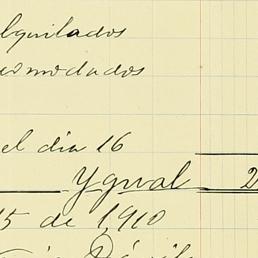 lquilados
omodados
el dia 16
Ygual 2
15 de 1,910